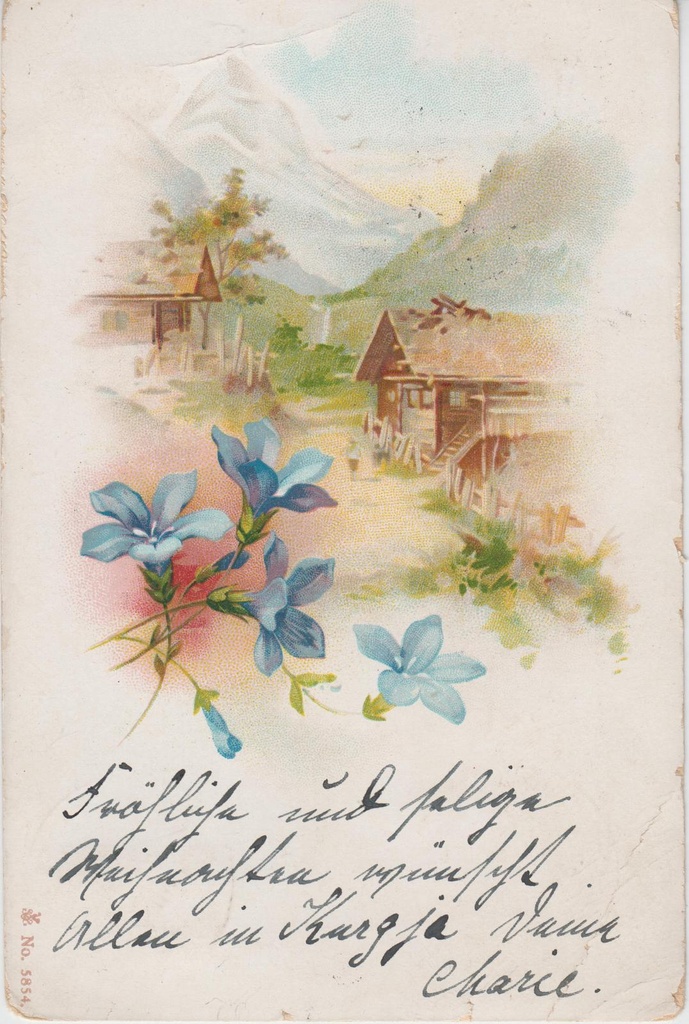 Fröhliche und selige
Weihnachten wünscht
Allen in Kurgja Deine
Charie.
No. 5854.